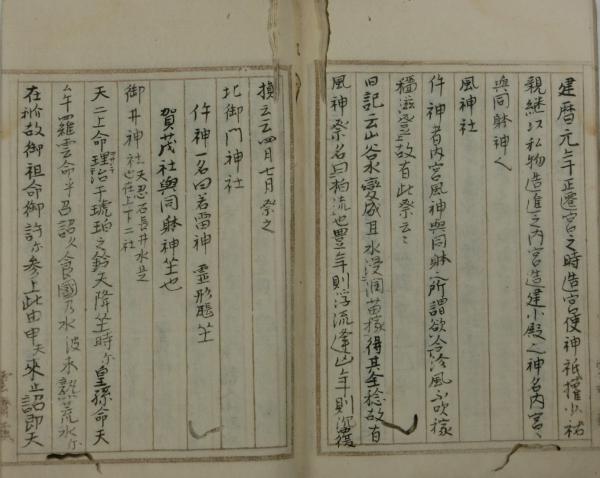 建暦元年正遷宮之時造宮使神祇権少祐
親継以私物造進之内宮造建小殿之神名内宮
與同躰神也
風神社
件神者内宮風神與同躰之所謂欲令冷風不吹稼
穡滋登故有此祭云々
旧記云山谷水變成甘水浸潤苗稼得其全稔故有
風神祭名曰柏流也豊年則浮流逢凶年則沉覆
損云云四月七月祭之
北御門神社
件神一名曰若雷神 霊形坐
賀茂社與同躰神坐也
御井神社 天忍石長井水是也在上下二社
天二上命理治于琥珀之鈴天降坐時尓皇孫命天
牟羅雲命乎召詔久食國乃水波未熟荒水尓
在祁故御祖命御許尓参上此由申天来止詔即天